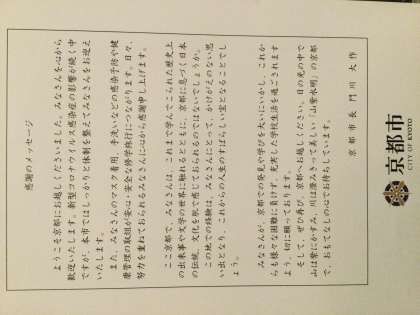 感謝のメッセージ
ようこそ京都にお越しくださいました。みなさんを心から
歓迎いたします。新型コロナウイルス感染症の影響が続く中
ですが、本市ではしっかりと体制を整えてみなさんをお迎え
いたします。
また、みなさんのマスク着用、手洗いなどの感染予防や健
康管理の取組が安心・安全な修学旅行につながります。日々、
努力を重ねておられるみなさんに心から感謝申し上げます。
ここ京都で、みなさんは、これまで学んでこられた歴史上
の出来事や文学の世界に触れるとともに、京都に息づく日本
の伝統、文化を肌で感じておられるのではないでしょうか。
この地での経験は、みなさんにとって、かけがえのない思
い出となり、これからの人生のすばらしい宝となることでし
ょう。
みなさんが、京都での発見や学びを大いにいかし、これか
らも様々な困難に負けず、充実した学校生活を過ごされます
よう、切に願っております。
そして、ぜひ再び、京都へお越しください。日の光の中で
山は紫にかすみ、川は澄みきって美しい「山紫水明」の京都
で、おもてなしの心でお待ちしています。
京都市長 門川 大作
京都市
CITY OF KYOTO